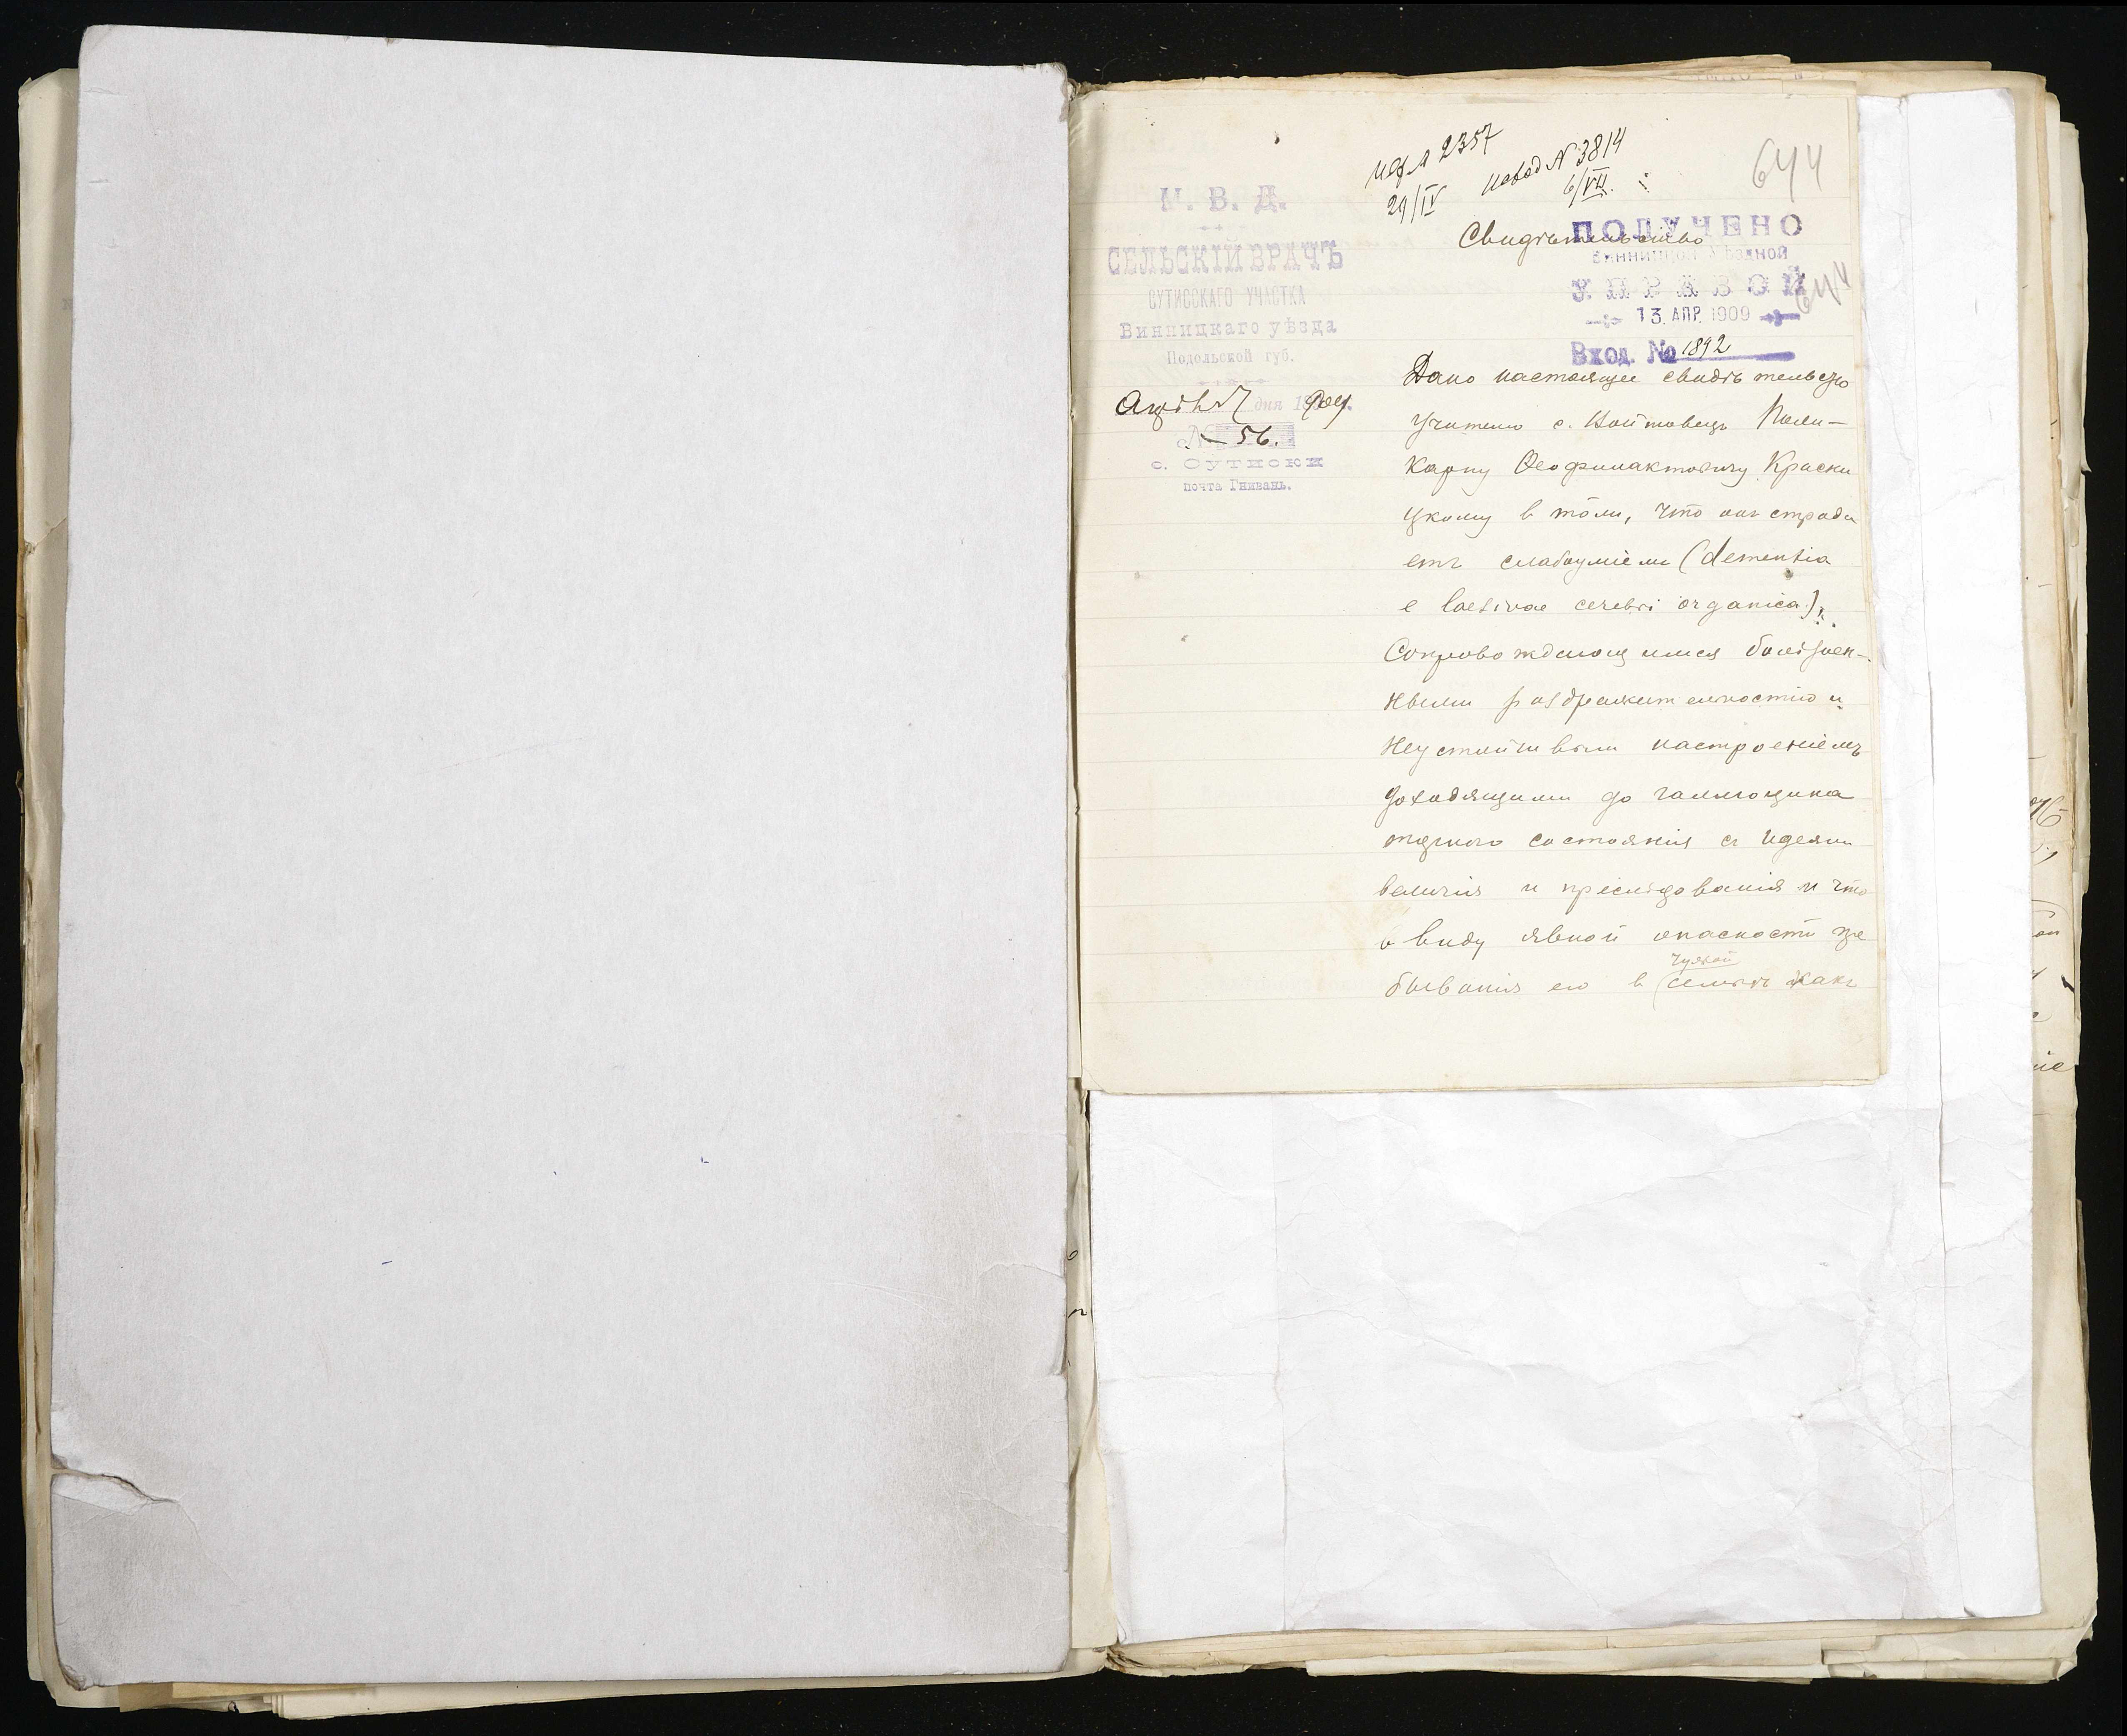 2357
29/IV
исход N 3814
6/VII.
644
М. В. Д.
СЕЛЬСКІЙ ВРАЧЪ
СУТИССКАГО УЧАСТКА
Винницкаго уѣзда
Подольской губ.
дня 1909 г.
№ 56.
с. Сутиски
почта Гнивань.
Свидѣтельство
ПОЛУЧЕНО
Винницкой Уѣздной
УПРАВОЙ
644
13. АПР. 1909
Вход. № 1892
Дано настоящее свидѣтельство
учителю с. Войтовецъ Поли-
карпу Ѳеофилактовичу Краски
цкому в томъ, что онъ страда
етъ слабоуміемъ (dementia
e laesivae cerebri organica),
Сопровождающимся болѣзнен-
нымъ раздражительностію и
Неустойчивымъ настроеніемъ
доходящимъ до галлюцина
торного состоянія съ идеями
величія и преслѣдованія и что
в виду явной опасности пре
чужой
быванія его в семьѣ какъ